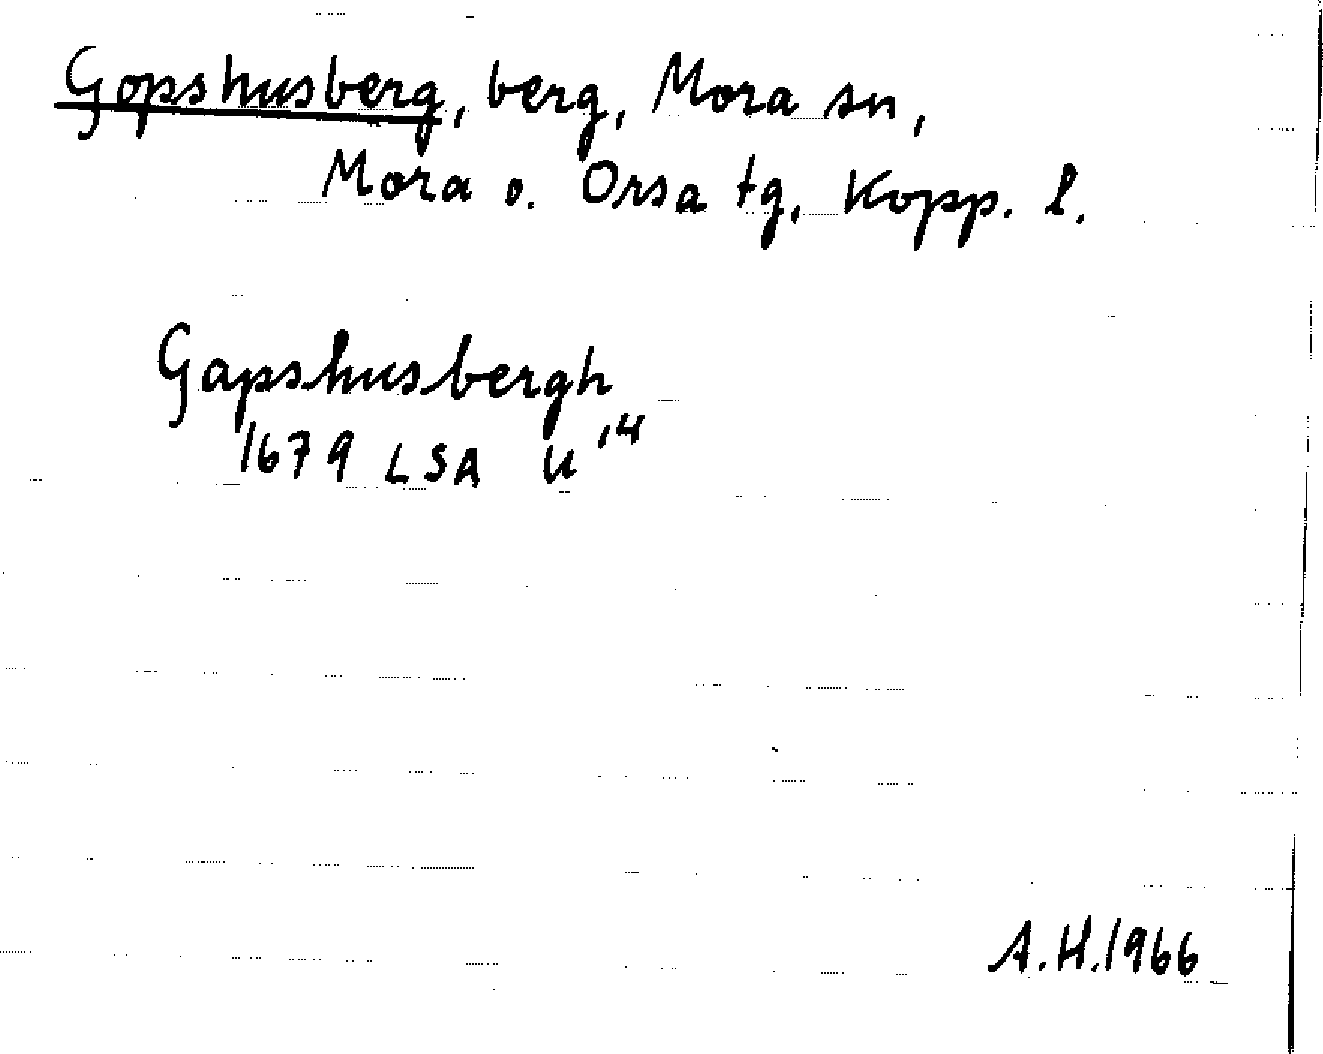 Gopshusberg, berg, Mora sn,
Mora o. Orsa tg, Kopp. l.
Gapshusbergh
1679 LSA U 14
A.H. 1966